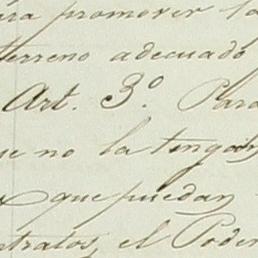 para promover la
terreno adecuado
Art. 3º Para
que no la tengan
que puedan
contratos, el Poder